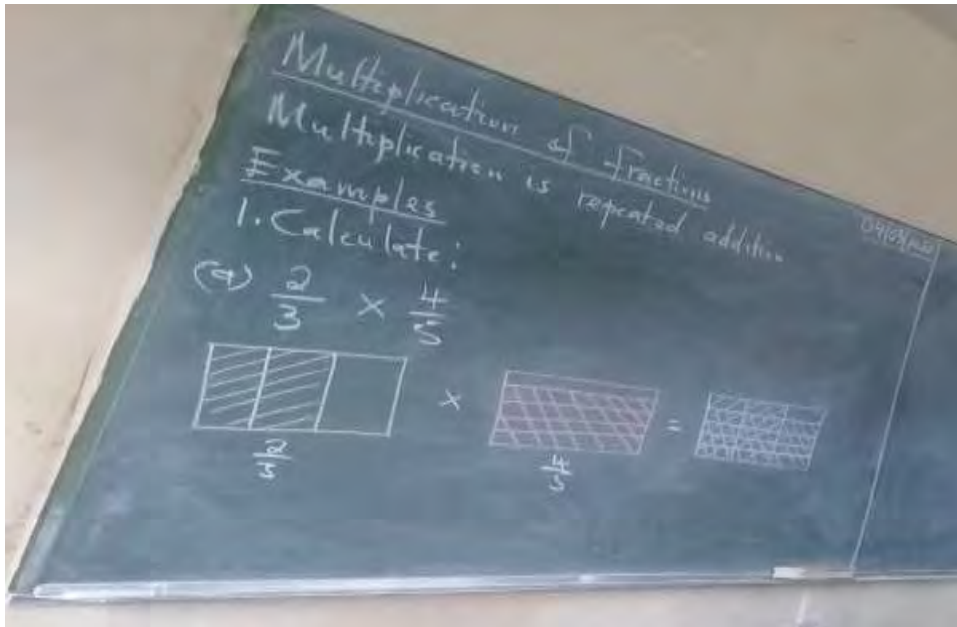 Multiplication of fractions
Multiplication is repeated addition
Examples
1. Calculate:
(a) 2/3 × 4/5
× =
2/3 4/5